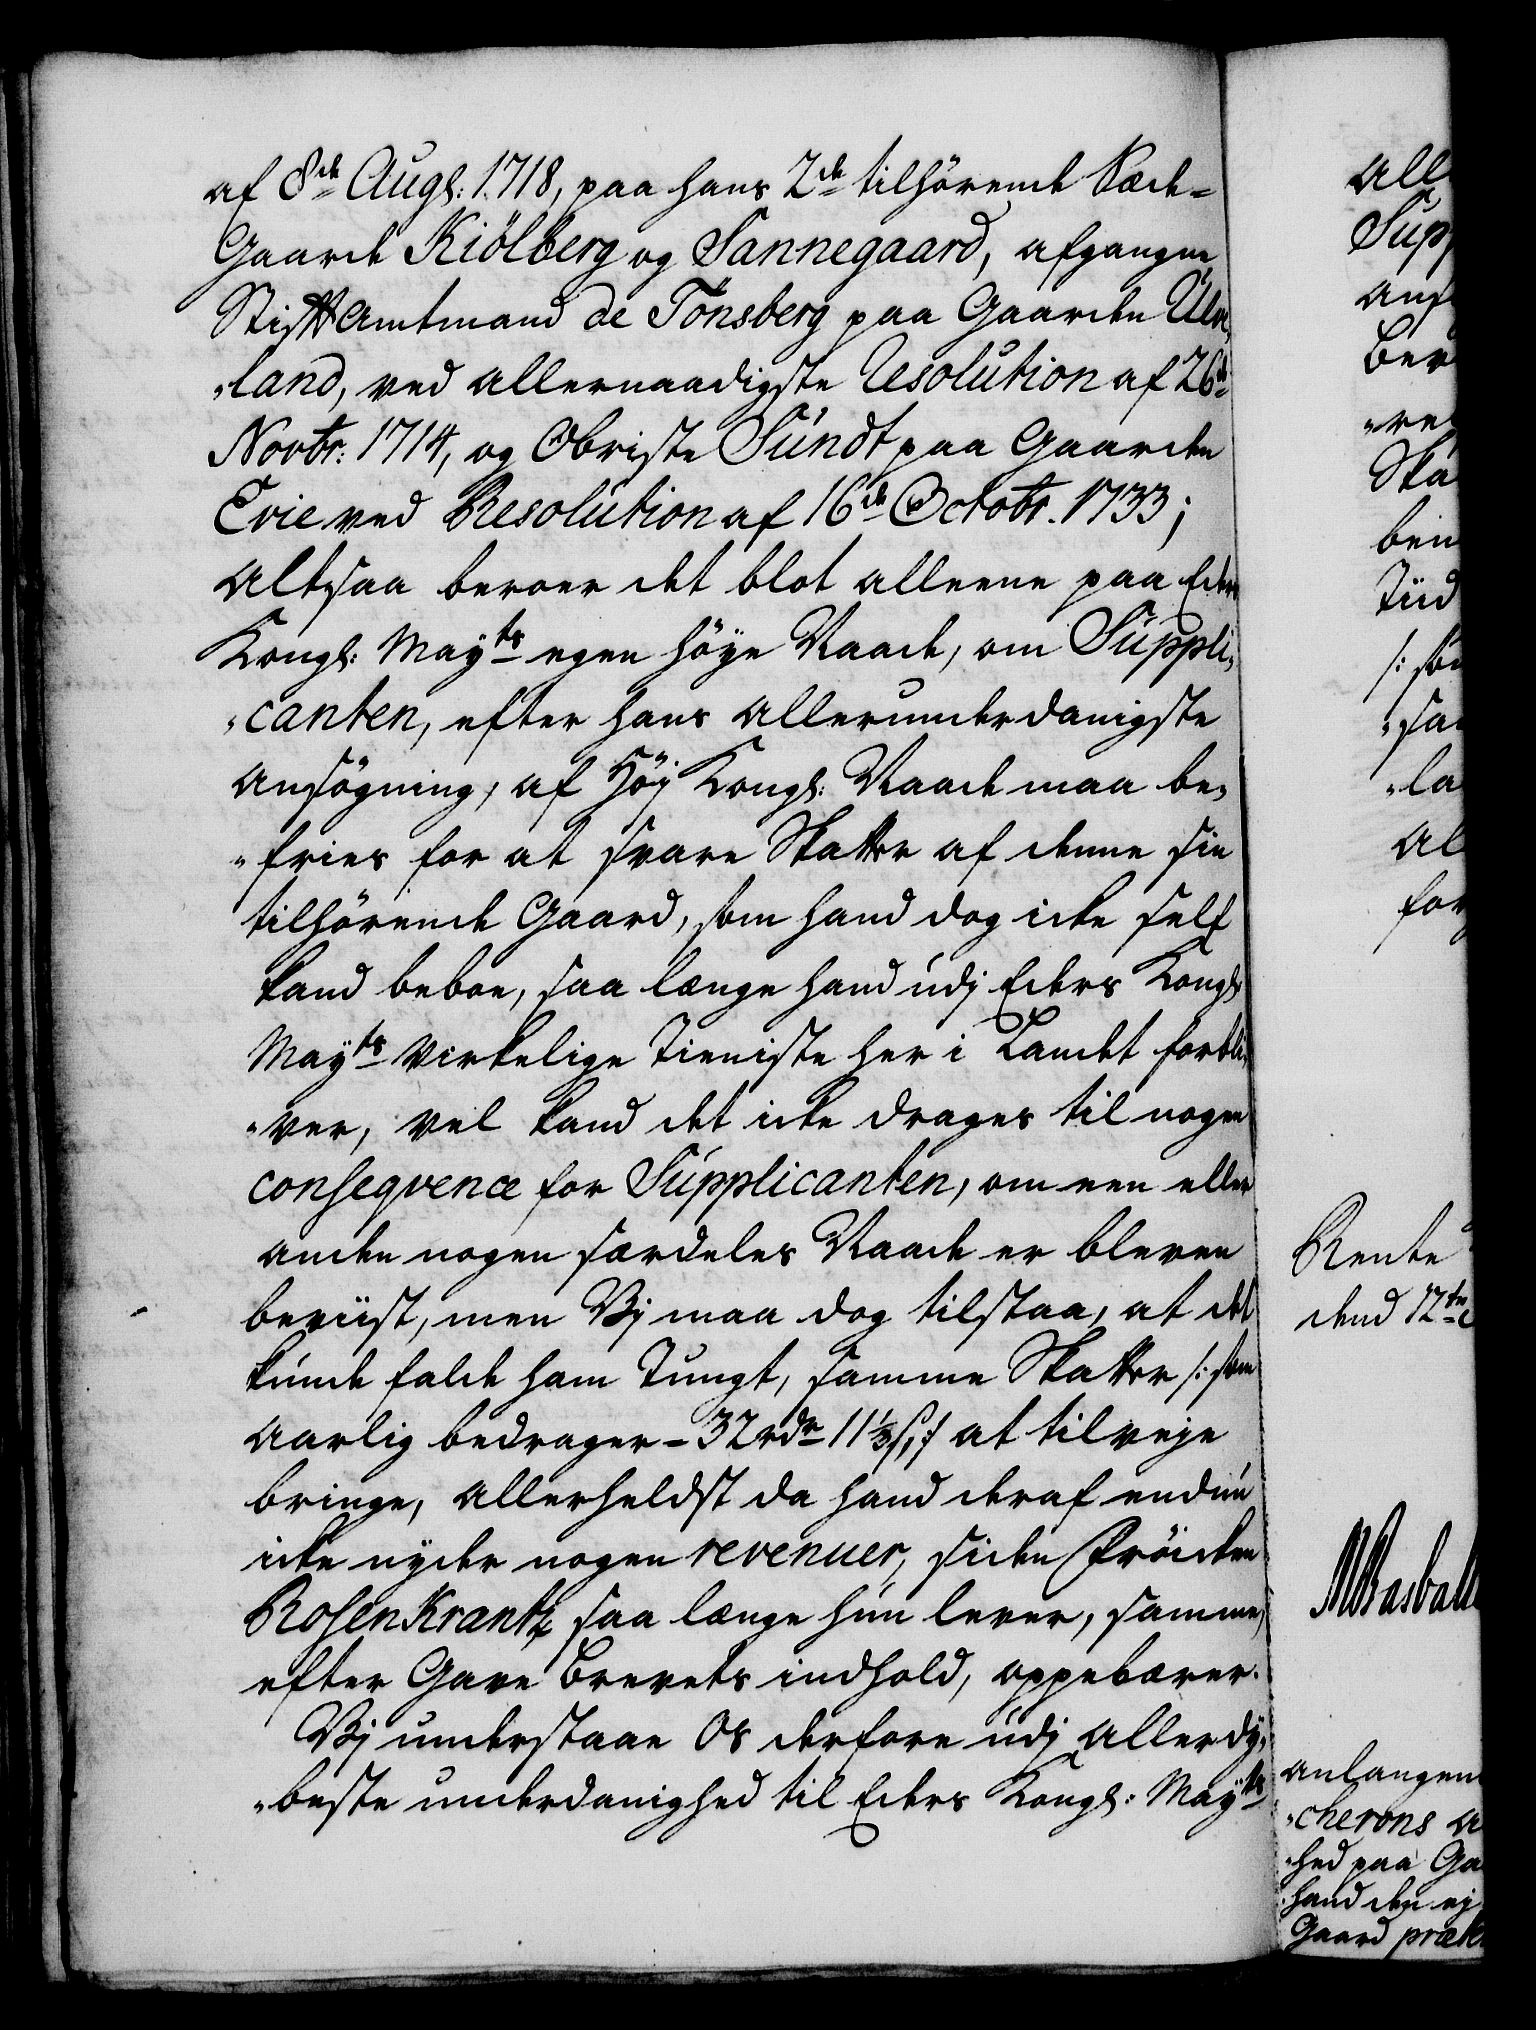 af 8de Augs: 1718, paa hans 2de tilhörende Sæde-
Gaarde Kiölberg og Sannegaard, afgangne
Stiftamtmand de Tonsberg paa Gaarden Ulve
„land, ved allernaadigste Resolution af 26de
Novbr: 1714, og Obriste Sundt paa Gaarden
Evie ved Resolution af 16de Octobr. 1733;
Altsaa beroer det blot alleene paa Eders
Kongl: Mayts egen höye Naade, om Suppli„
„canten, efter hans allerunderdanigste
ansögning, af Höy Kongl: Naade maa be„
„fries for at svare Skatter af denne sin
tilhörende Gaard, som hand dog icke self
kand beboe, saa længe hand udj Eders Kongl:
Mayts virkelige Tieniste her i Landet forbli„
„ver, vel kand det icke drages til nogen
conseqvence for Supplicanten, om een eller
anden nogen særdeles Naade er bleven
beviist, men Vj maa dog tilstaa, at det
kunde falde ham Tungt, samme Skatter /: som
aarlig bedrager - 32 rdr 11 1/3 s :/ at tilveje
bringe, allerheldst da hand deraf endnu
icke nyder nogen revenuer, siden Fröiken
Rosenkrantz saa længe hun lever, samme
efter Gave Brevets indhold, oppebærer.
Vj understaae Os derfore udj allerdy„
„beste underdanighed til Eders Kongl: Mayts
all
Supp
ans
Ber
„re
Ska
ben
Tiid
/: som
„sa
„la
al
for
Rente
dend 12te
anlangen
„cherons a
„hed paa Ga
hand den ej
Gaard præk